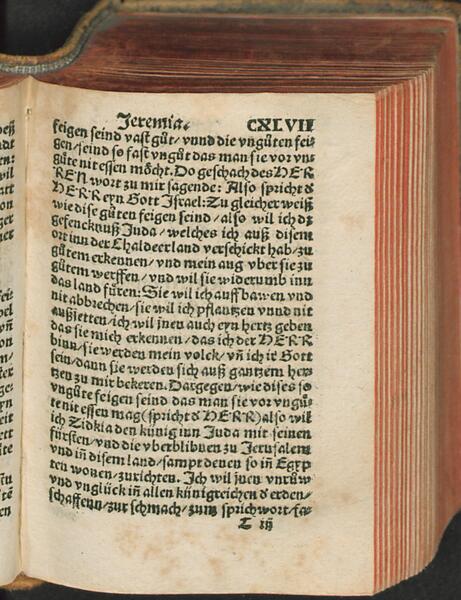 Jeremia. CXLVII
feigen seind vast gůt/ vnnd die vngůten fei⸗
gen/seind so fast vngůt das man sie vor vn⸗
gůte nit essen möcht. Do geschach des HER
REN wort zu mir sagende: Also spricht ð
HERR eyn Gott Israel: Zu gleicher weiß
wie dise gůten feigen seind/also wil ich dz
gefencknuß Juda/ welches ich auß disem
ort inn der Chaldeer land verschickt hab/zu
gůtem erkennen/ vnd mein aug vber sie zu
gůtem werffen/ vnd wil sie widerumb inn
das land fůren: Sie wil ich auffbawen vnd
nit abbrechen/sie wil ich pflantzen vnnd nit
außjetten/ich wil jnen auch eyn hertz geben
das sie mich erkennen/das ich der HERR
binn/sie werden mein volck/ vñ ich ir Gott
sein/dann sie werden sich auß gantzem her⸗
tzen zu mir bekeren. Dargegen/wie dises so
vngůte feigen seind das man sie vor vngů⸗
te nit essen mag (spricht ð HERR) also wil
ich Zidkia den künig inn Juda mit seinen
fürsten/ vnd die vberblibnen zu Jerusalem
vnd iñ disem land/sampt denen so in Egyp
ten wonen/zurichten. Ich wil jnen vnrůw
vnd vnglück iñ allen künigreichen ð erden/
schaffenn/zur schmach/zum sprichwort/fa⸗
T iij